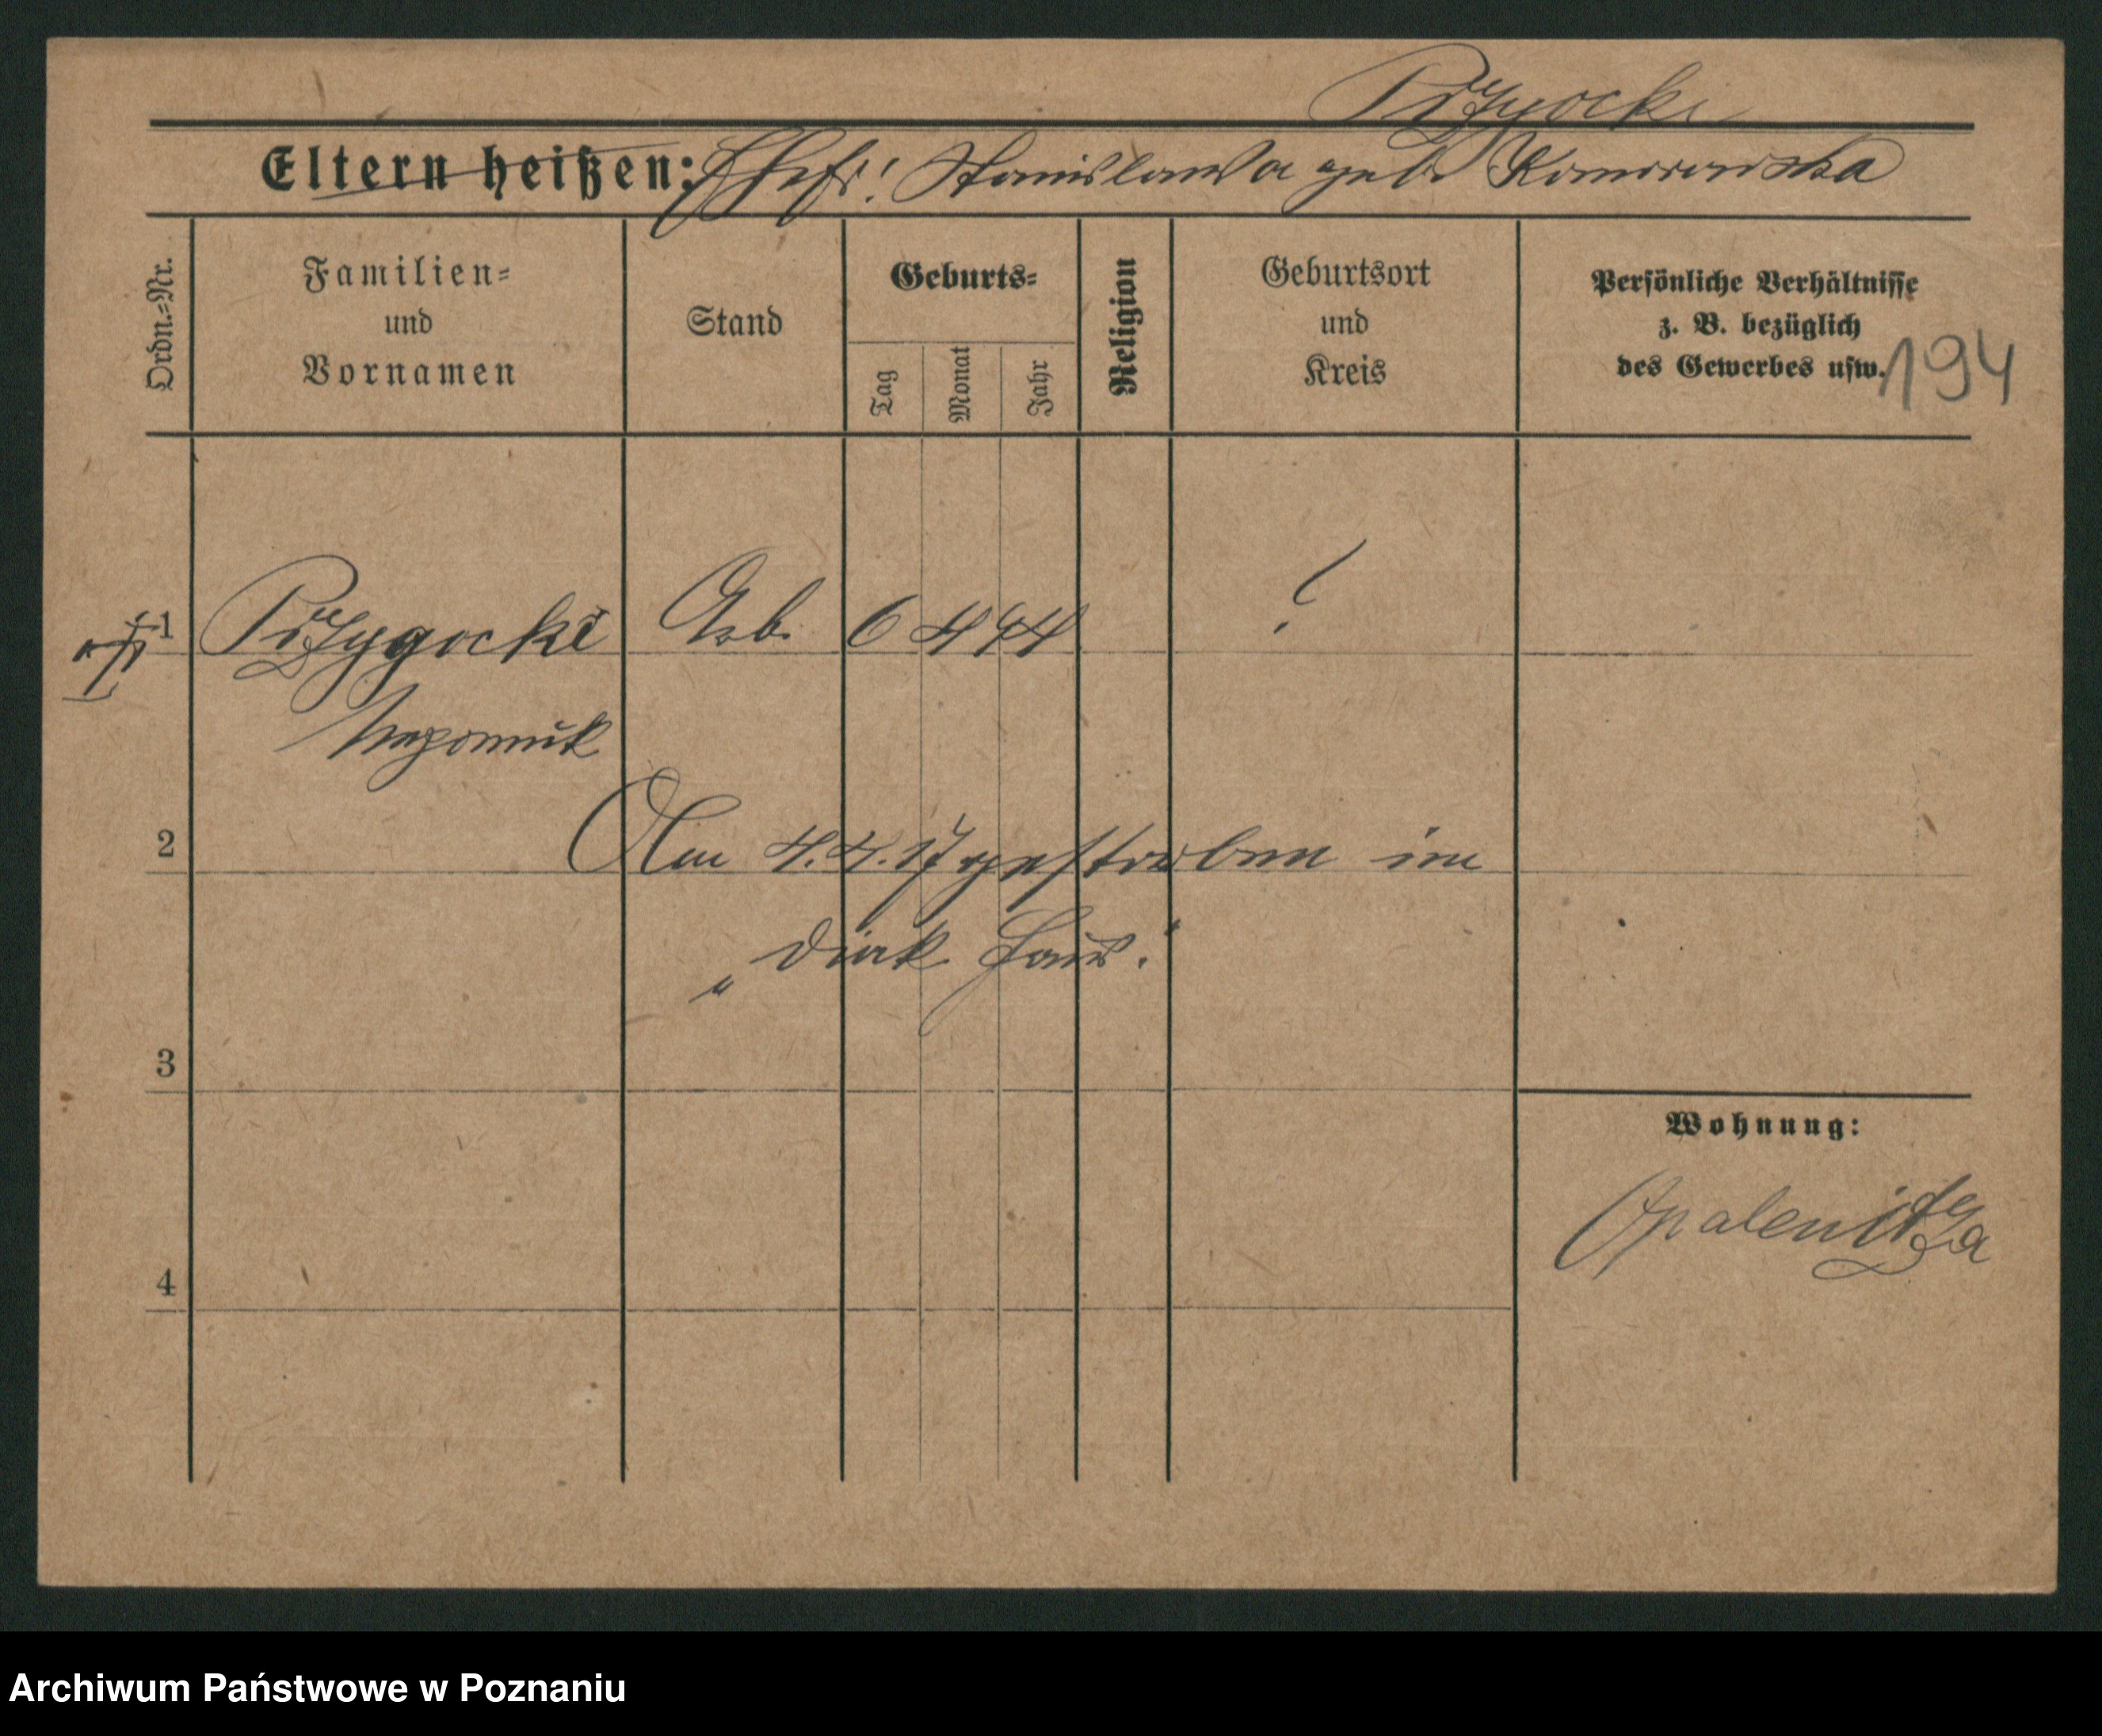 Przyocki
Eltern heißen: Ehefr: Stanislawa geb. Komorowska
Ordn.=Nr.
Familien=
und
Vornamen
Stand
Geburts=
Tag
Monat
Jahr
Religion
Geburtsort
und
Kreis
Persönliche Verhältnisse
z. B. bezüglich
des Gewerbes usw.
194
1 Przygocki Arb. 6 4 94 ?
Nepomuk
2 Am 4.4.17 gestorben im
" Haus."
3
Wohnung:
Opalenitza
4
Archiwum Państwowe w Poznaniu